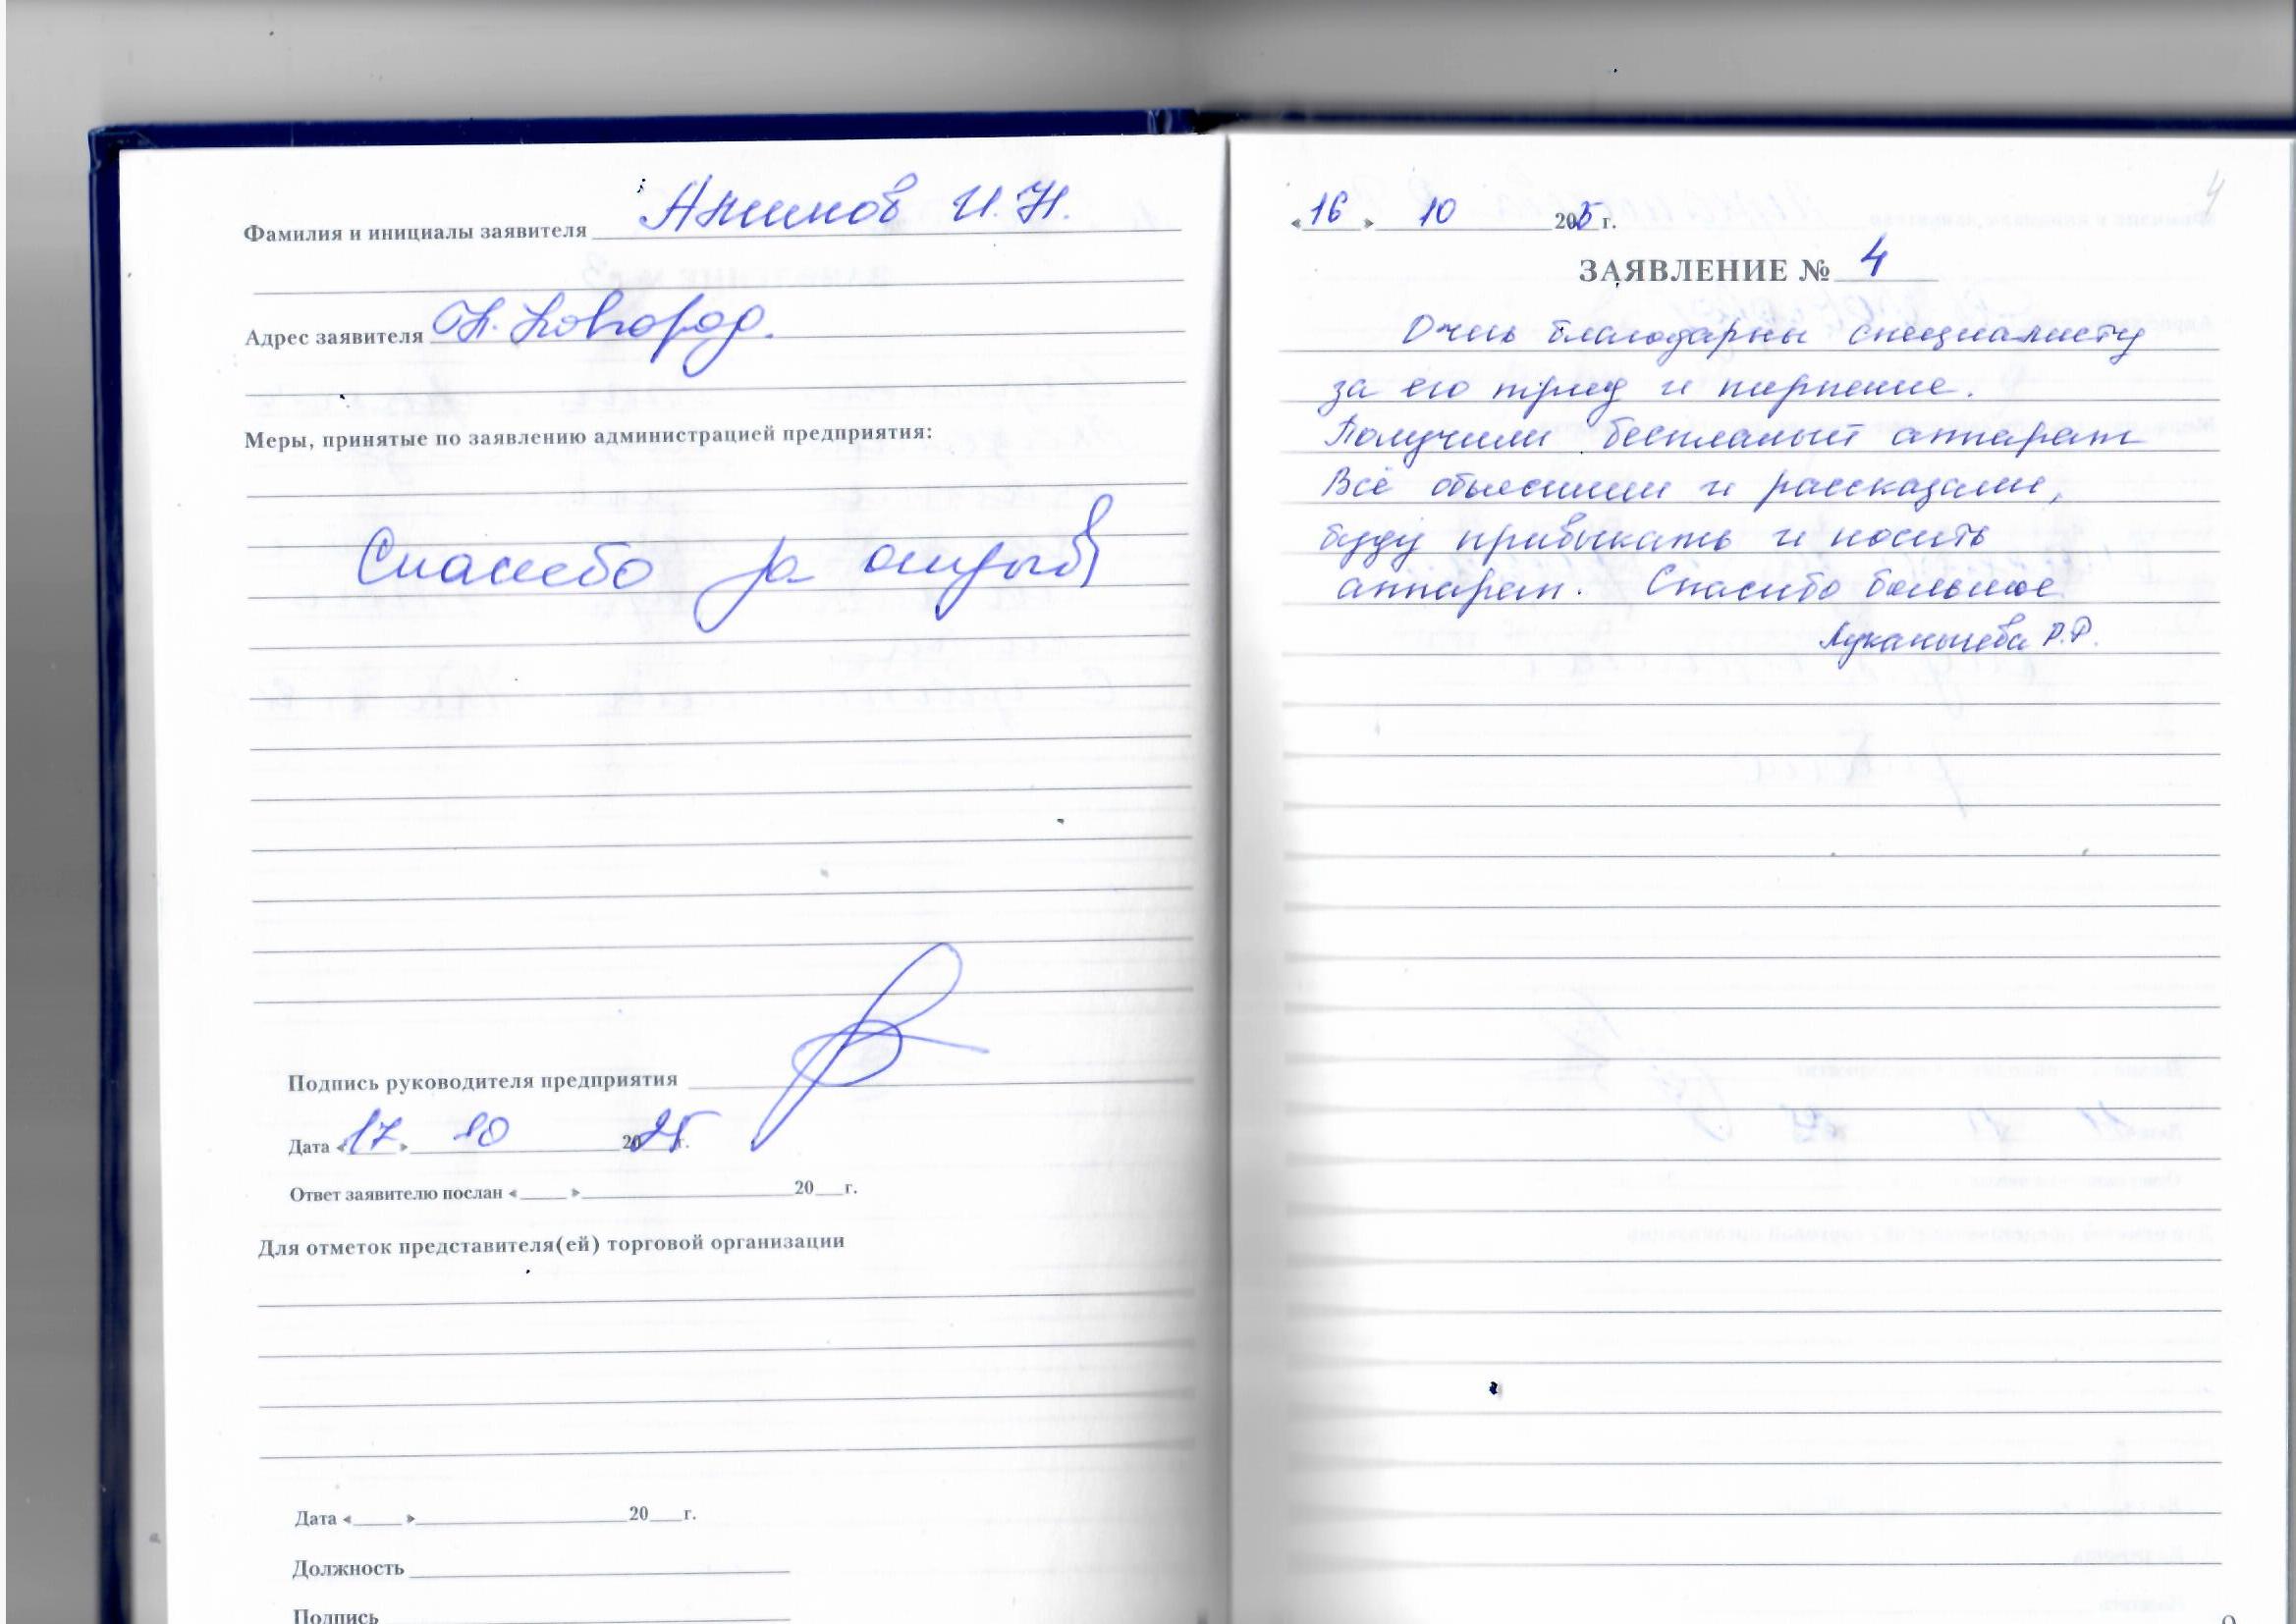 Фамилия и инициалы заявителя И.Н.
Адрес заявителя Н. Новгород.
Меры, принятые по заявлению администрацией предприятия:
Спасибо за отзыв
Подпись руководителя предприятия
Дата «17» 10 2025 г.
Ответ заявителю послан « » 20 г.
Для отметок представителя(ей) торговой организации
Дата « » 20 г.
Должность
Подпись
«16» 10 205 г.
4
ЗАЯВЛЕНИЕ № 4
Очень благодарны специалисту
за его труд и терпение.
Получили бесплатный аппарат
Всё объяснили и рассказали,
буду привыкать и носить
аппарат. Спасибо большое
Р.Р.